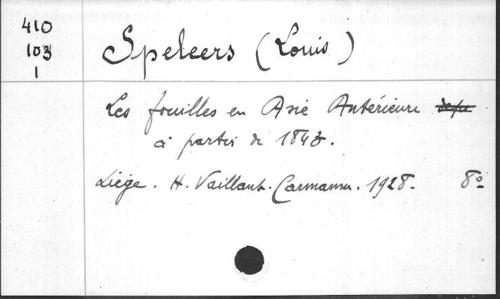 410
103
1
Speleers (Louis)
Les fouilles en Asie Antérieure
à partir de 1843.
Liège. H. Vaillant. Carmanne. 1928. 8°